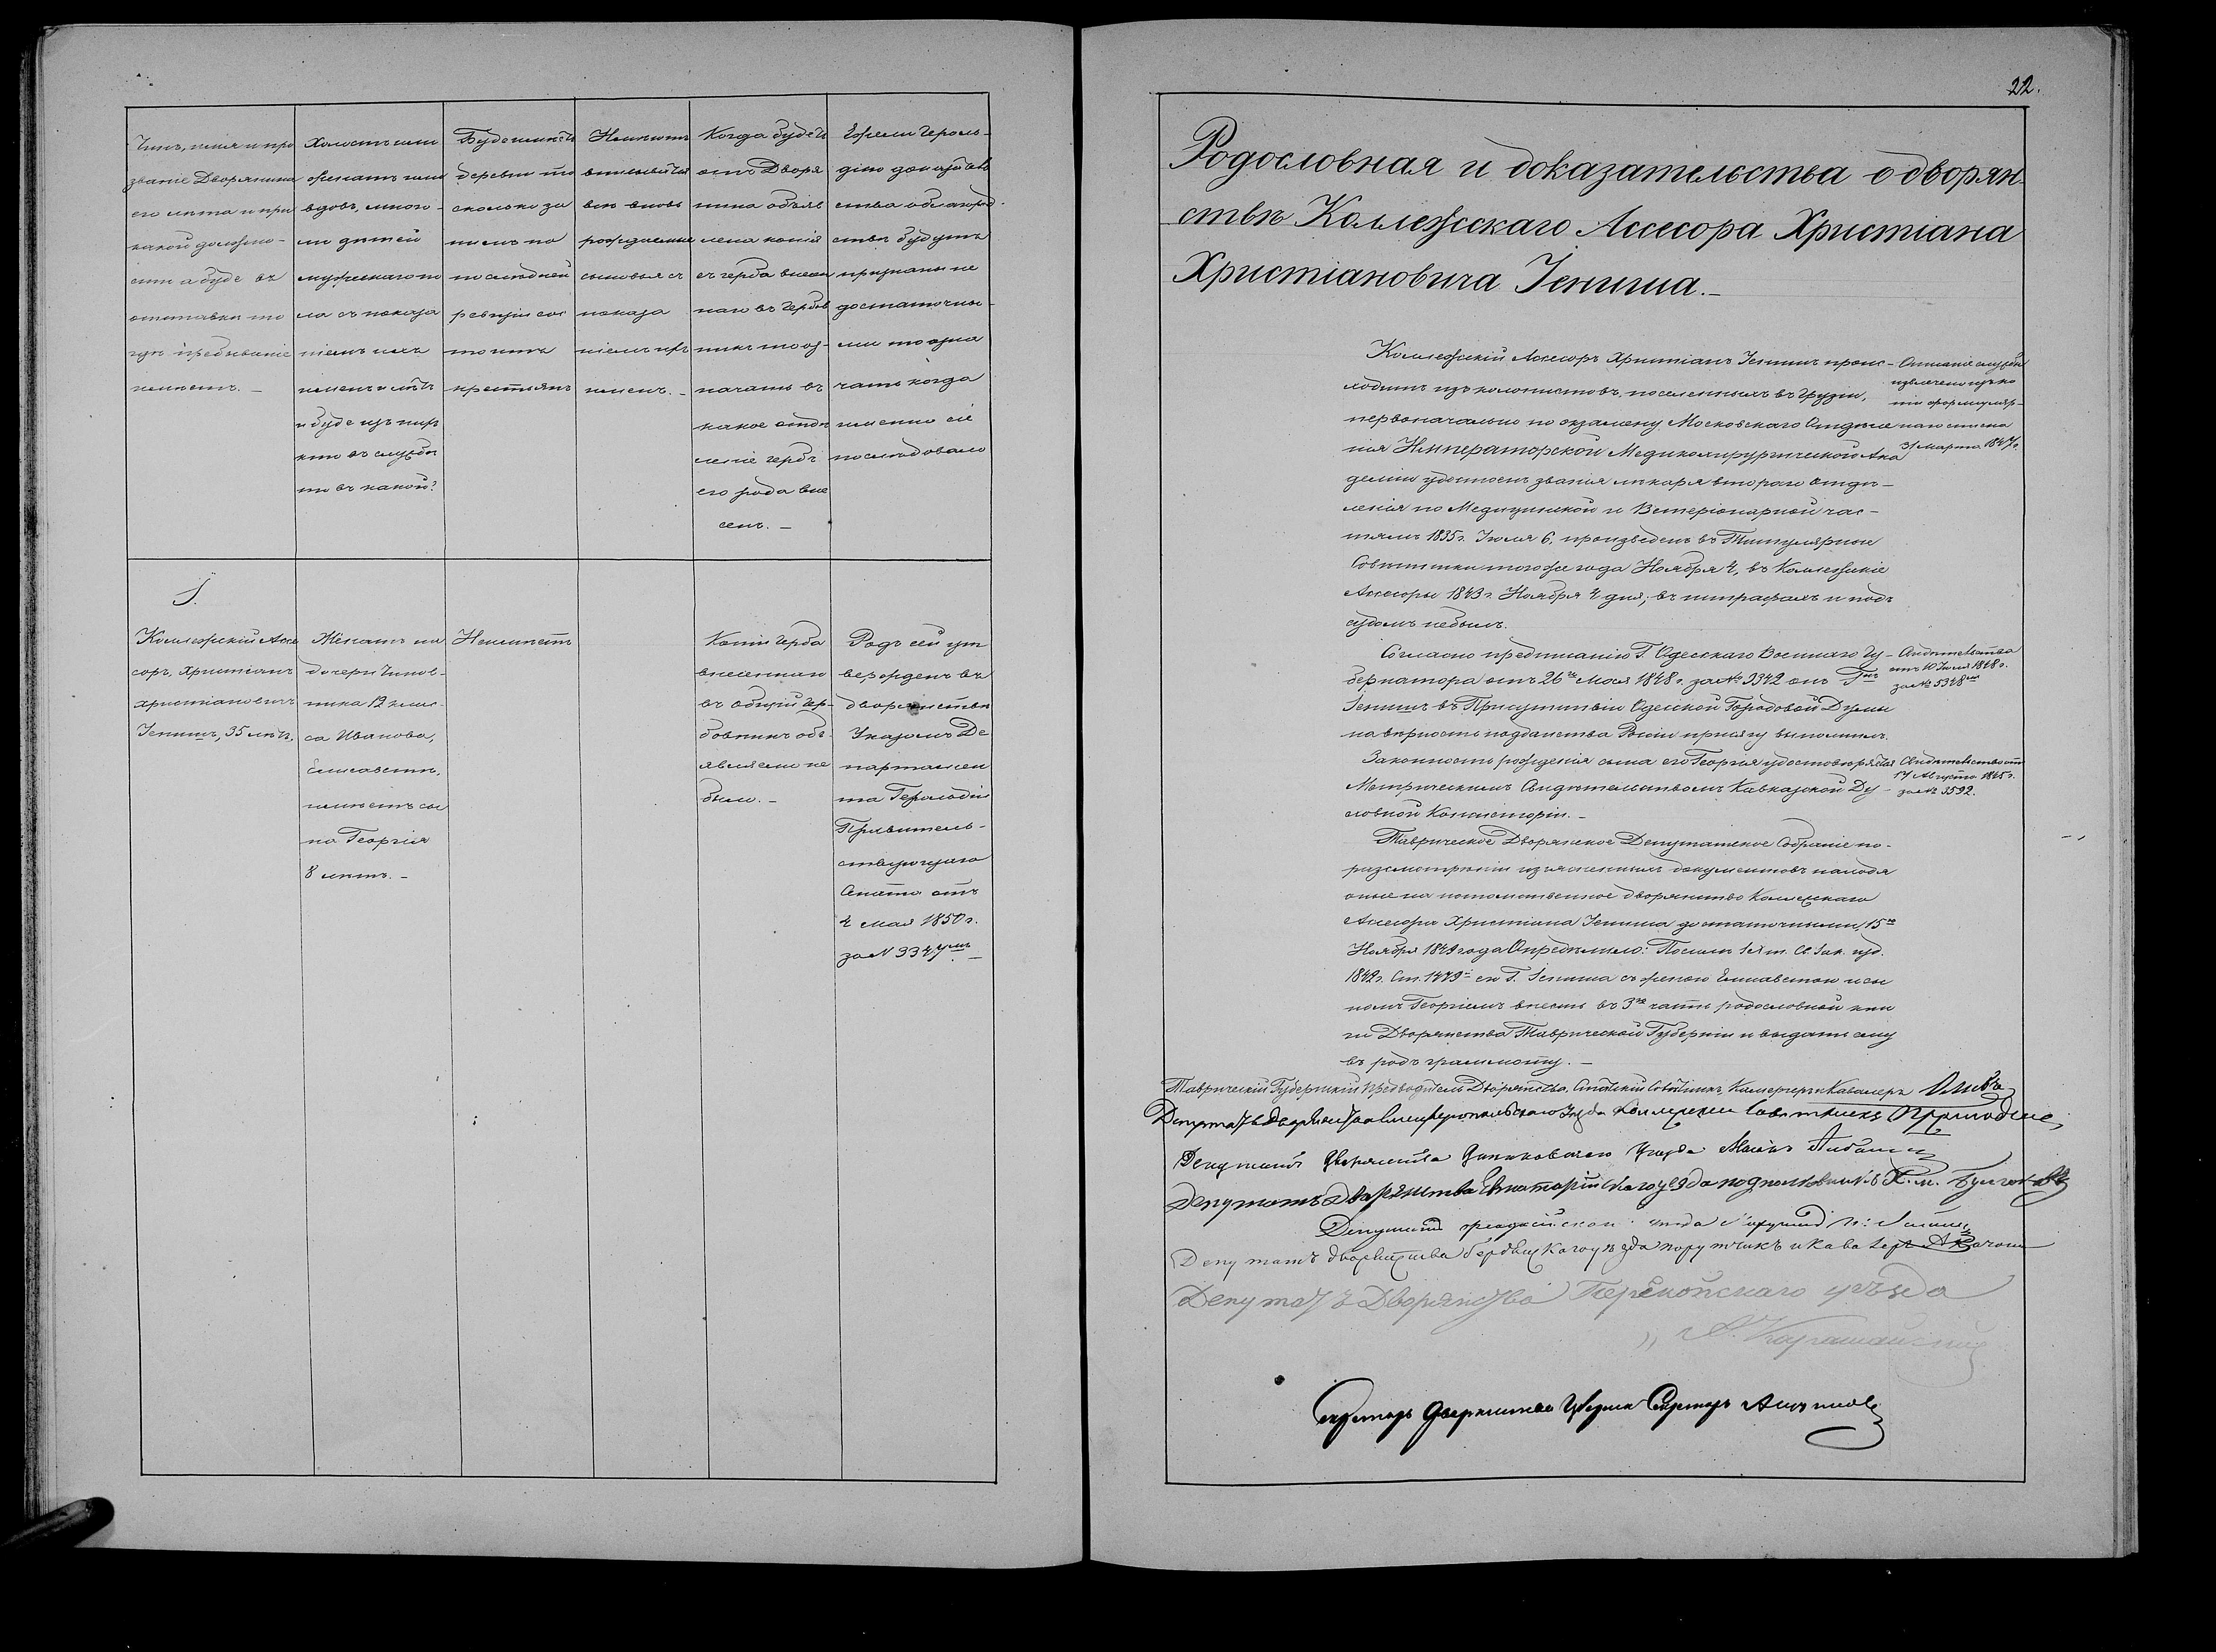 Чинъ, имя и про
званіе Дворянина
его лѣта и при
какой должно-
сти а буде въ
отставкѣ то
гдѣ пребываніе
имѣетъ. –
Холостъ или
женатъ или
вдовъ, много-
ли дѣтей
мужескаго по
ла съ показа
ніемъ ихъ
именъ и лѣтъ
и буде изъ нихъ
кто въ службѣ
то въ какой?
Буде имѣетъ
деревни то
сколько за
нимъ по
послѣдней
ревизіи сос
тоитъ
крестьянъ
Неимѣетъ
вписывайтся
всѣ вновь
рождаемые
сыновья съ
показа
ніемъ ихъ
именъ. –
Когда будетъ
отъ Дворя
нина объяв
лена копія
съ герба внесен
наго въ Гербов
никъ то оз-
начать въ
какое отдѣ
леніе гербъ
его рода вне
сенъ. –
Ежели Героль-
діею доказатель
ства о благород
ствѣ будутъ
признаны не
достаточны-
ми то озна
чать когда
именно сіе
послѣдовало
1.
Коллежскій Ассе
соръ, Христіанъ
Христіановичъ
Іенишъ, 35 лѣтъ.
Женатъ на
дочери Чинов-
ника 12 клас-
са Иванова,
Елисаветѣ,
имѣетъ сы
на Георгія
8 лѣтъ. –
Неимѣетъ
Копіи Герба
внесеннаго
въ общій Гер-
бовникъ объ-
являемо не
было. –
Родъ сей ут
вержденъ въ
дворянствѣ
Указомъ Де
партамен
та Герольдіи
Правитель-
ствующаго
Сената отъ
4 мая 1850 г.
за № 3347мъ –
22.
Родословная и доказательства о дворян-
ствѣ Коллежскаго Ассесора Христіана
Христіановича Іениша. –
Коллежскій Ассесоръ Христіанъ Іенишъ проис-
ходитъ изъ колонистовъ, поселенныхъ въ Грузіи,
первоначально по экзамену Московскаго Отдѣле
нія Императорской Медикохирургической Ака
деміи удостоенъ званія лѣкаря втораго отдѣ-
ленія по Медицинской и Ветеріонарной час-
тямъ 1835 г. Іюля 6, произведенъ въ Титулярные
Совѣтники того же года Ноября 4, въ Коллежскіе
Ассесоры 1843 г. Ноября 4 дня; въ штрафахъ и подъ
судомъ небылъ.
Описаніе службы
извлечено изъ ко
піи формуляр-
наго списка
31 марта 1847 г.
Согласно предписанію Г. Одесскаго Военнаго Гу-
бернатора отъ 26го Мая 1848 г. за № 9342 онъ Гнъ
Іенишъ въ Присутствіи Одесской Городовой Думы
на вѣрность подданства Россіи присягу выполнилъ.
Свидѣтельство
отъ 10 Іюля 1848 г.
за № 5348мъ
Законность рожденія сына его Георгія удостовѣряется
Метрическимъ Свидѣтельствомъ Кавказской Ду-
ховной Консисторіи. –
Свидѣтельство отъ
17 Августа 1845 г.
за № 3592.
Таврическое Дворянское Депутатское Собраніе по-
разсмотрѣніи изъясненныхъ документовъ находя
оные на потомственное дворянство Коллежскаго
Ассесора Христіана Іениша достаточными, 15го
Ноября 1849 года Опредѣлило: По силѣ IX т. Св. Зак. изд.
1842 г. Ст. 1449й его Г. Іениша съ женою Елисаветою и сы
номъ Георгіемъ внесть въ 3ю часть родословной кни
ги Дворянства Таврической Губерніи и выдать ему
въ родъ граммоту. –
Таврическій Губернскій Предводитель Дворянства, Статскій Совѣтникъ, Камергеръ и Кавалеръ
Депутатъ Дворянства Симферопольскаго Уѣзда Коллежскій Совѣтникъ
Депутатъ Дворянства Днѣпровскаго Уѣзда Маіоръ
Депутатъ Дворянства Евпаторійскаго уѣзда подполковникъ К. М. Булгаковъ
Депутатъ
Депутатъ дворянства бердянскаго уѣзда порутчикъ и кавалеръ
Депутатъ Дворянства Перекопскаго уѣзда
Секретарь Дворянства Губерн. Секретарь